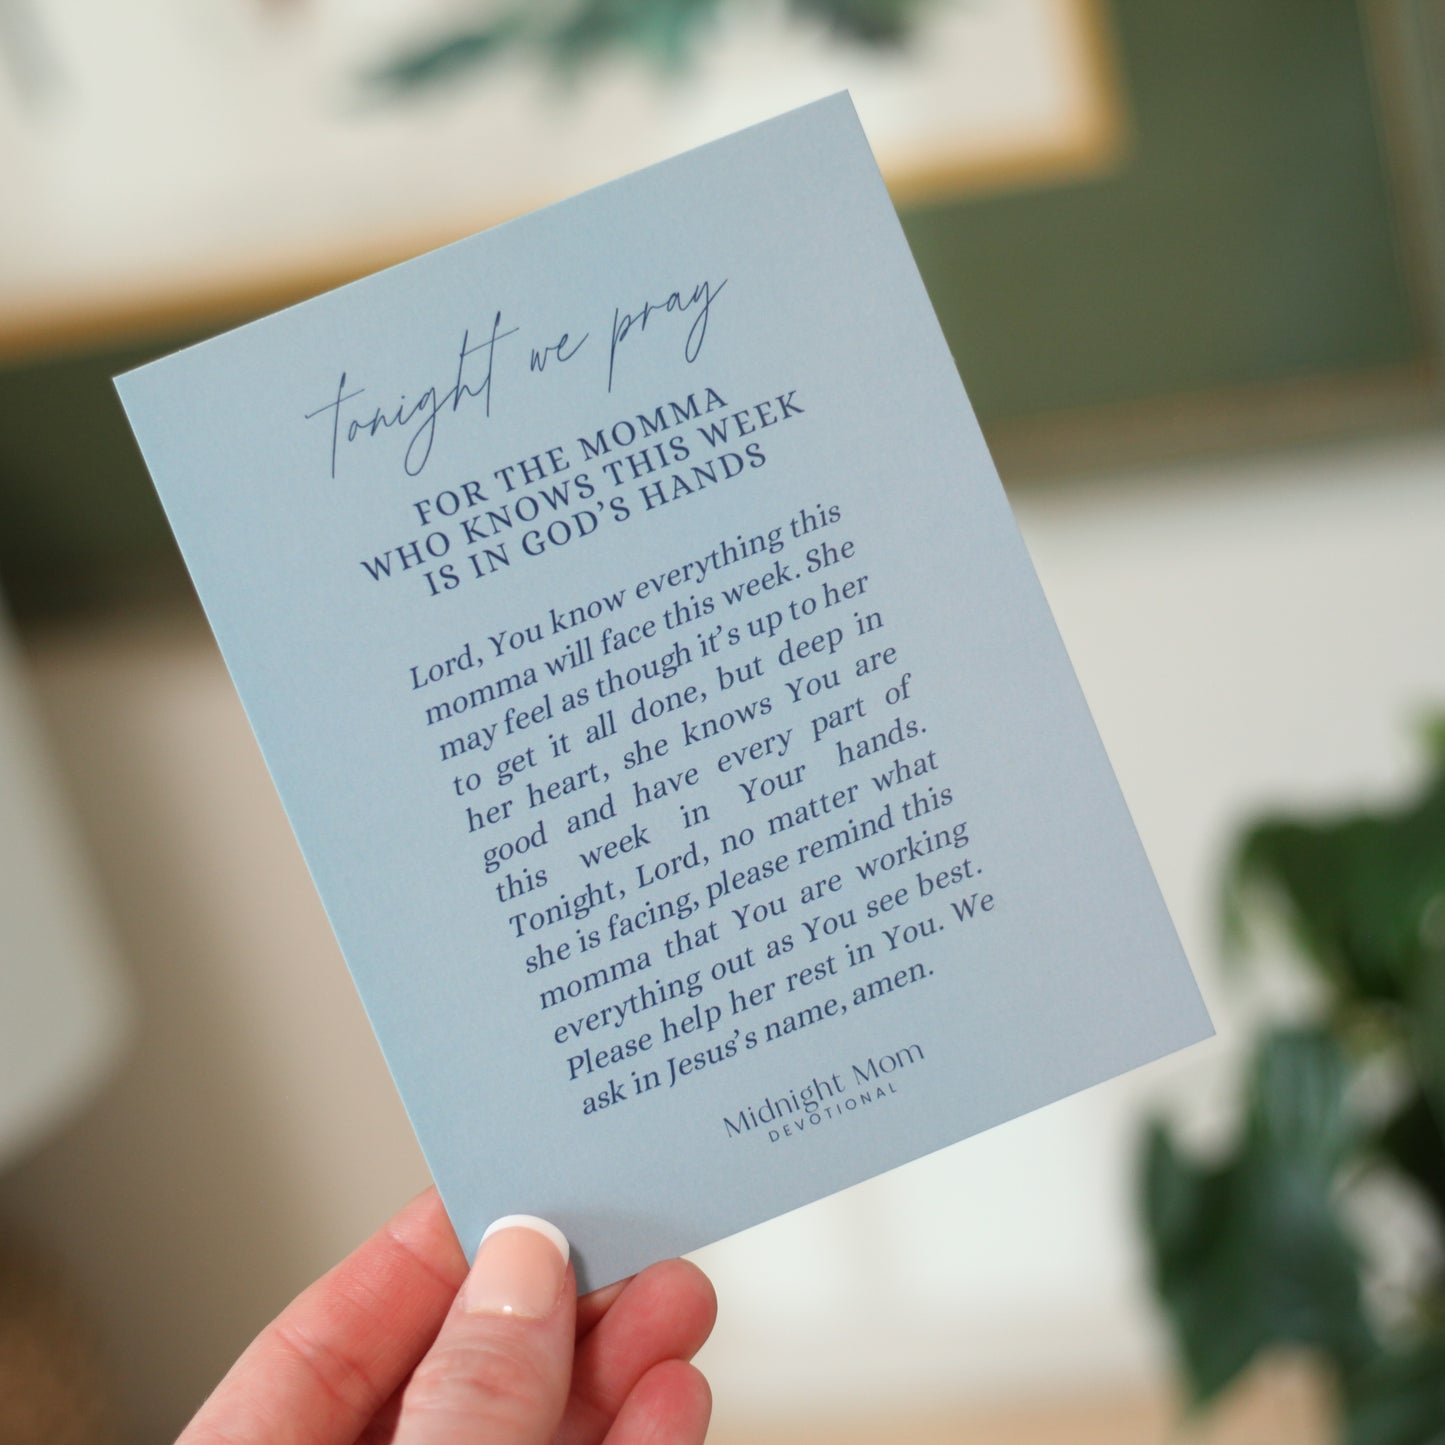 tonight we pray
FOR THE MOMMA
WHO KNOWS THIS WEEK
IS IN GOD’S HANDS
Lord, You know everything this
momma will face this week. She
may feel as though it’s up to her
to get it all done, but deep in
her heart, she knows You are
good and have every part of
this week in Your hands.
Tonight, Lord, no matter what
she is facing, please remind this
momma that You are working
everything out as You see best.
Please help her rest in You. We
ask in Jesus’s name, amen.
Midnight Mom
DEVOTIONAL